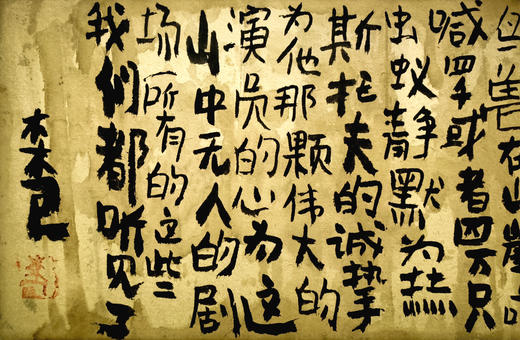 在山崖
喊或者四万只
虫蚁静默为杰
斯托夫的诚挚
为他那颗伟大的
演员的心为这
山中无人的剧
场所有的这些
我们都听见了
木木